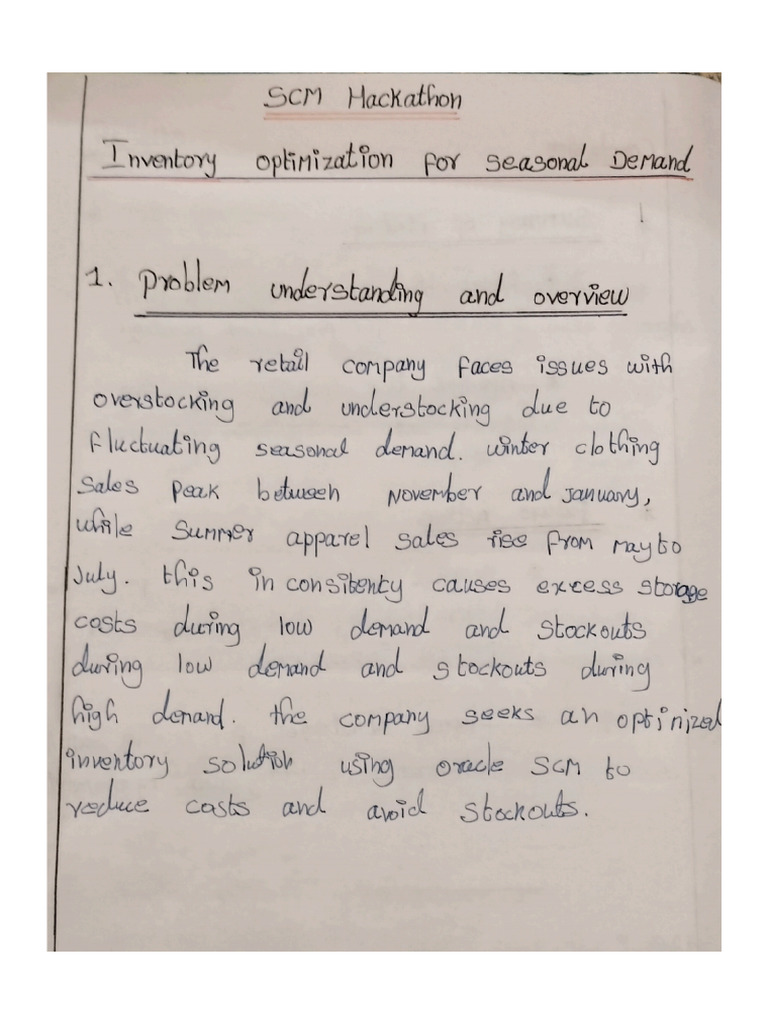 SCM Hackathon
Inventory optimization for seasonal Demand
1. problem understanding and overview
The retail company faces issues with
overstocking and understocking due to
fluctuating seasonal demand. winter clothing
sales peak between November and January,
while summer apparel sales rise from may to
July. this in consitenty causes excess storage
costs during low demand and stockouts
during low demand and stockouts during
high demand. the company seeks an optimized
inventory solution using oracle SCM to
reduce costs and avoid stockouts.